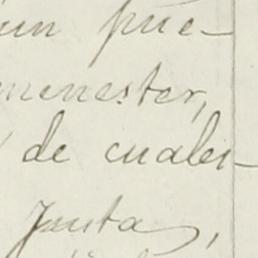 un pue-
menester,
de cuales-
Junta,